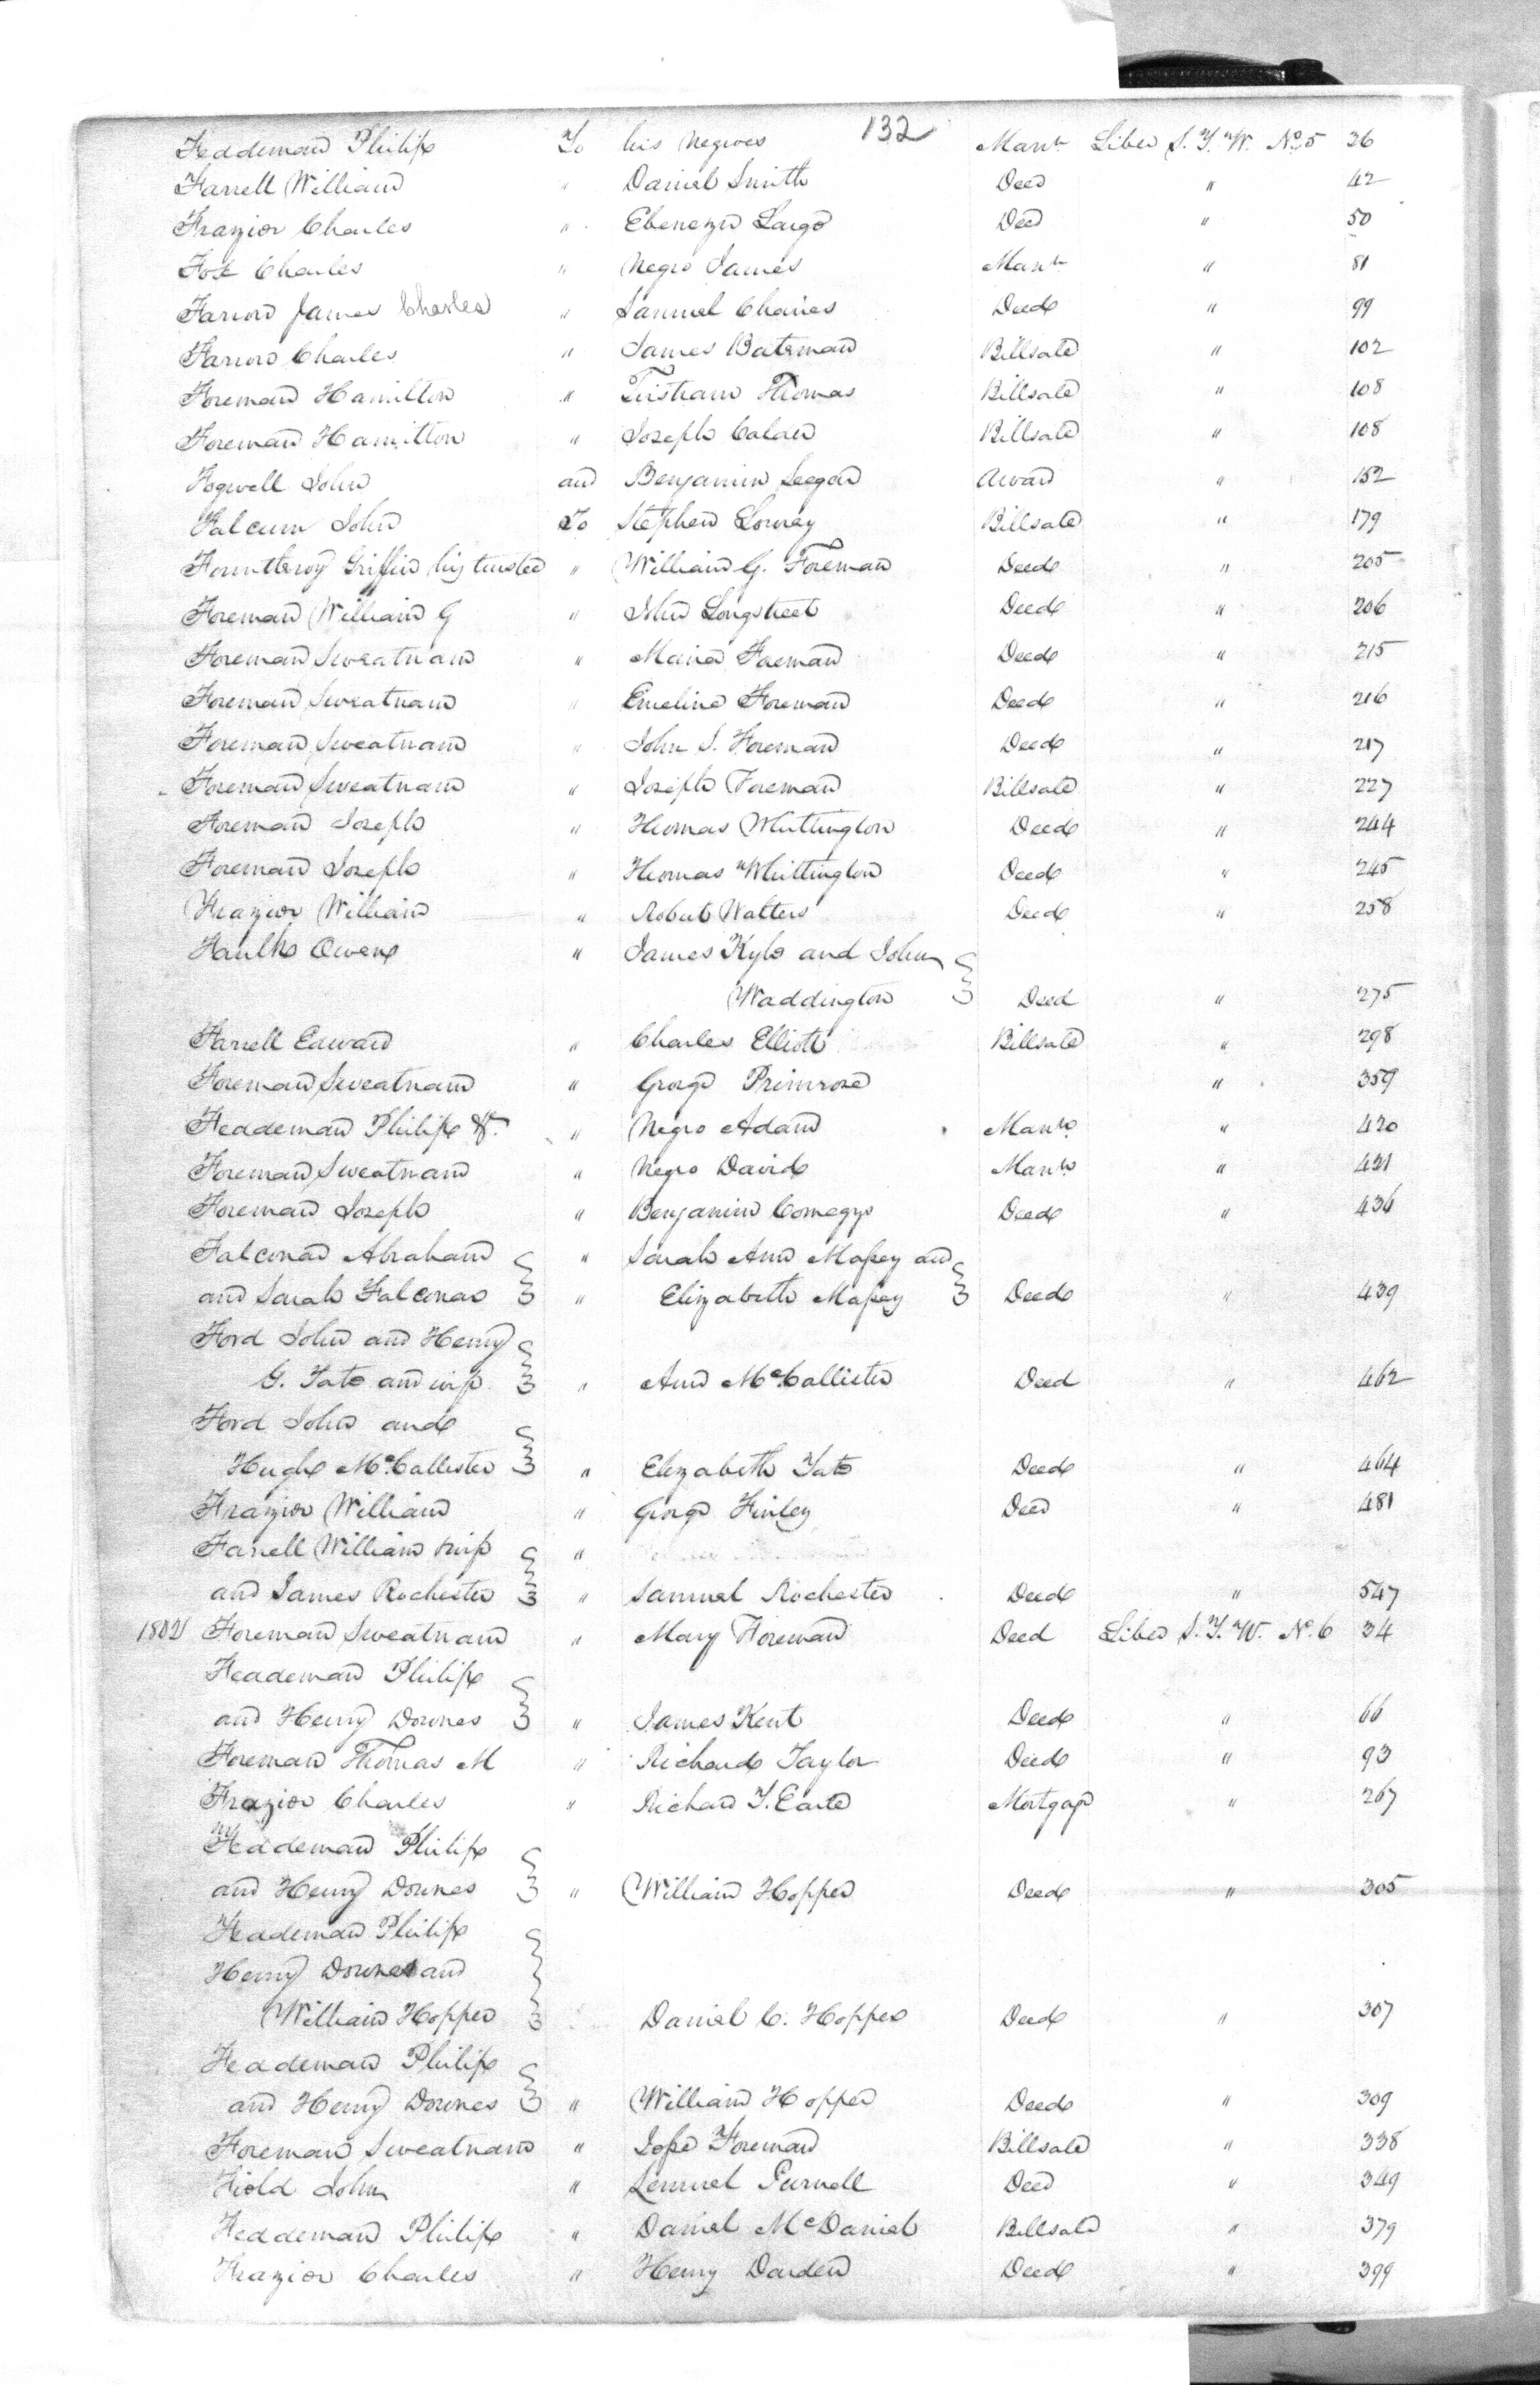 132
Feddeman Philip To his Negroes Mann Liber S. T. W. No 5 26
Farrell William " Daniel Smith Deed " 42
Frazier Charles " Ebenezer Large Deed " 50
Fox Charles " Negro James Mann " 81
Farrow James Charles " Samuel Chaires Deed " 99
Farrow Charles " James Bateman Billsale " 102
Foreman Hamilton " Tristram Thomas Billsale " 108
Foreman Hamilton " Joseph Calder Billsale " 108
Fogwell John and Benjamin Seegar Award " 152
Falcum John To Stephen Lowrey Billsale " 179
Fountleroy Griffin his trustee " William G. Foreman Deed " 205
Foreman William G " John Longstreet Deed " 206
Foreman Sweatnam " Maria Foreman Deed " 215
Foreman Sweatnam " Emeline Foreman Deed " 216
Foreman Sweatnam " John S. Foreman Deed " 217
Foreman Sweatnam " Joseph Foreman Billsale " 227
Foreman Joseph " Thomas Whittington Deed " 244
Foreman Joseph " Thomas Whittington Deed " 245
Frazier William " Robert Walters Deed " 258
Faulks Owen " James Kyle and John
Waddington Deed " 275
Farrell Edward " Charles Elliott Billsale " 298
Foreman Sweatnam " George Primrose " 359
Feddeman Philip W. " Negro Adam Mann " 420
Foreman Sweatnam " Negro David Mann " 421
Foreman Joseph " Benjamin Comegys Deed " 436
Falconar Abraham " Sarah Ann Massey and
and Sarah Falconar " Elizabeth Massey Deed " 439
Ford John and Henry
G. Tate and wife " Ann McCallister Deed " 462
Ford John and
Hugh McCallister " Elizabeth Tate Deed " 464
Frazier William " George Finley Deed " 481
Farrell William & wife "
and James Rochester " Samuel Rochester Deed " 547
1802 Foreman Sweatnam " Mary Foreman Deed Liber S. T. W. No. 6 34
Feddeman Philip
and Henry Downes " James Kent Deed " 66
Foreman Thomas M " Richard Taylor Deed " 93
Frazier Charles " Richard T. Earle Mortgage " 267
Feddeman Philip
and Henry Downes " William Hopper Deed " 305
Feddeman Philip
Henry Downes and
William Hopper Daniel C. Hopper Deed " 307
Feddeman Philip
and Henry Downes " William Hopper Deed " 309
Foreman Sweatnam " Jesse Foreman Billsale " 338
Field John " Lemuel Purnell Deed " 349
Feddeman Philip " Daniel McDaniel Billsale " 379
Frazier Charles " Henry Darden Deed " 399